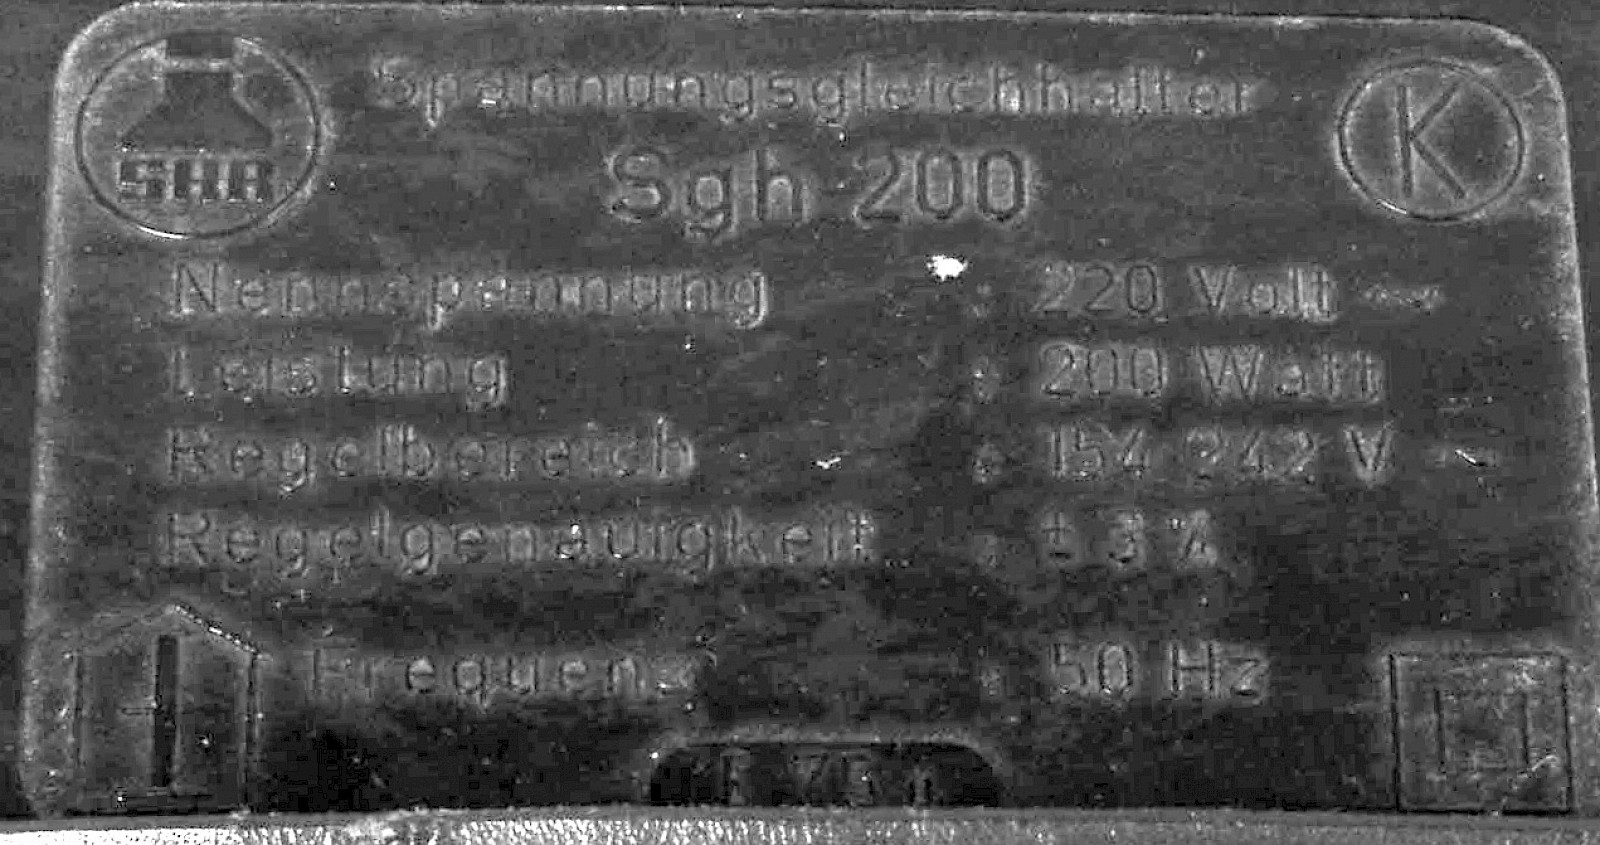 SAR
Spannungsgleichhalter
K
Sgh 200
Nennspannung : 220 Volt ~
Leistung : 200 Watt
Regelbereich : 154-242 V ~
Regelgenauigkeit : ± 3 %
Frequenz : 50 Hz